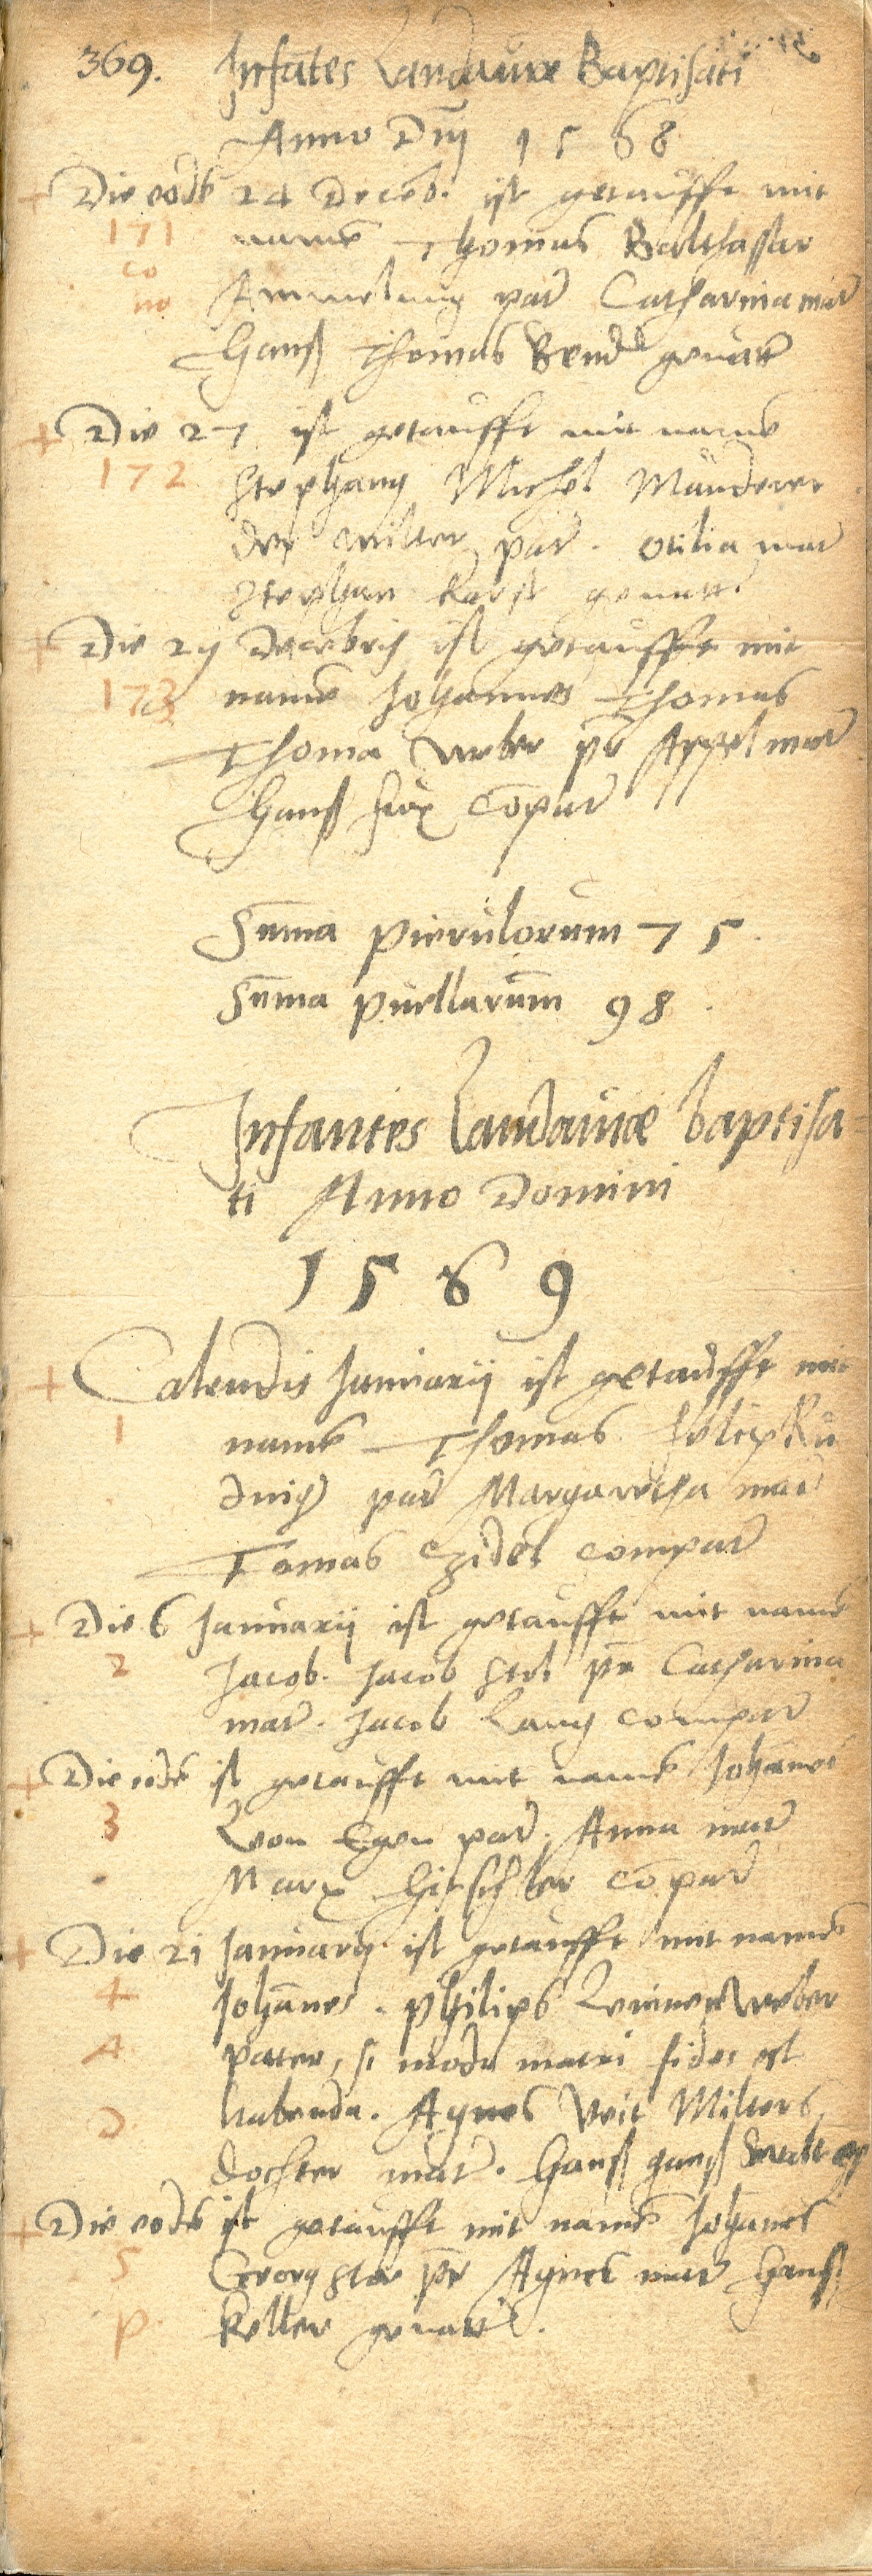 369. Infātes Landauiæ Baptisati
Anno Dnj 1568
+ Die eodē 24 Decēb. ist getaufft mit
171 namē Thomas Balthassar
co
no Ammelung pat̄ Catharina mat̄
Hanß Thomas Bend gevatt̄
+ Die 27 ist getaufft mit namē
172 Stephany Michel Maüderer
der pat̄. Otilia mat̄
Stephan Karst gevatt̄
+ Die 29 Decēbris ist getaufft mit
173 namē Johannes Thomas
Thoma Weber pr̄ Appel mat̄
Hanß fux cōpat̄
Sūma puerulorum 75.
Sūma puellarum 98.
Infantes Landauiæ baptisa=
ti Anno Domini
1569
+ Calendis Januarij ist getaufft mit
1 namē Thomas
pat̄ Margaretha mat̄
Tomas compat̄
+ Die 6 Januarij ist getaufft mit namē
2 Jacob. Jacob pr̄ Catharina
mat̄. Jacob Lang compat̄
+ Die eodē ist getaufft mit namē Johānes
3 Leon Egen pat̄. Anna mat̄
Marx Hirschler cōpat̄
+ Die 21 Januarij ist getaufft mit namē
4 Johānes. Philips Leineweber
A pater, si modo matri fides est
habenda. Agnes Veit Milters
D dochter mat̄. Hanß ganß
+ Die eodē ist getaufft mit namē Johānes
5 Georg Star pr̄ Agnes mat̄ Hanß
p Keller gevatt̄.